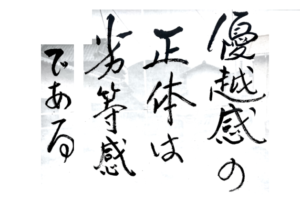 優越感の
正体は
劣等感
である